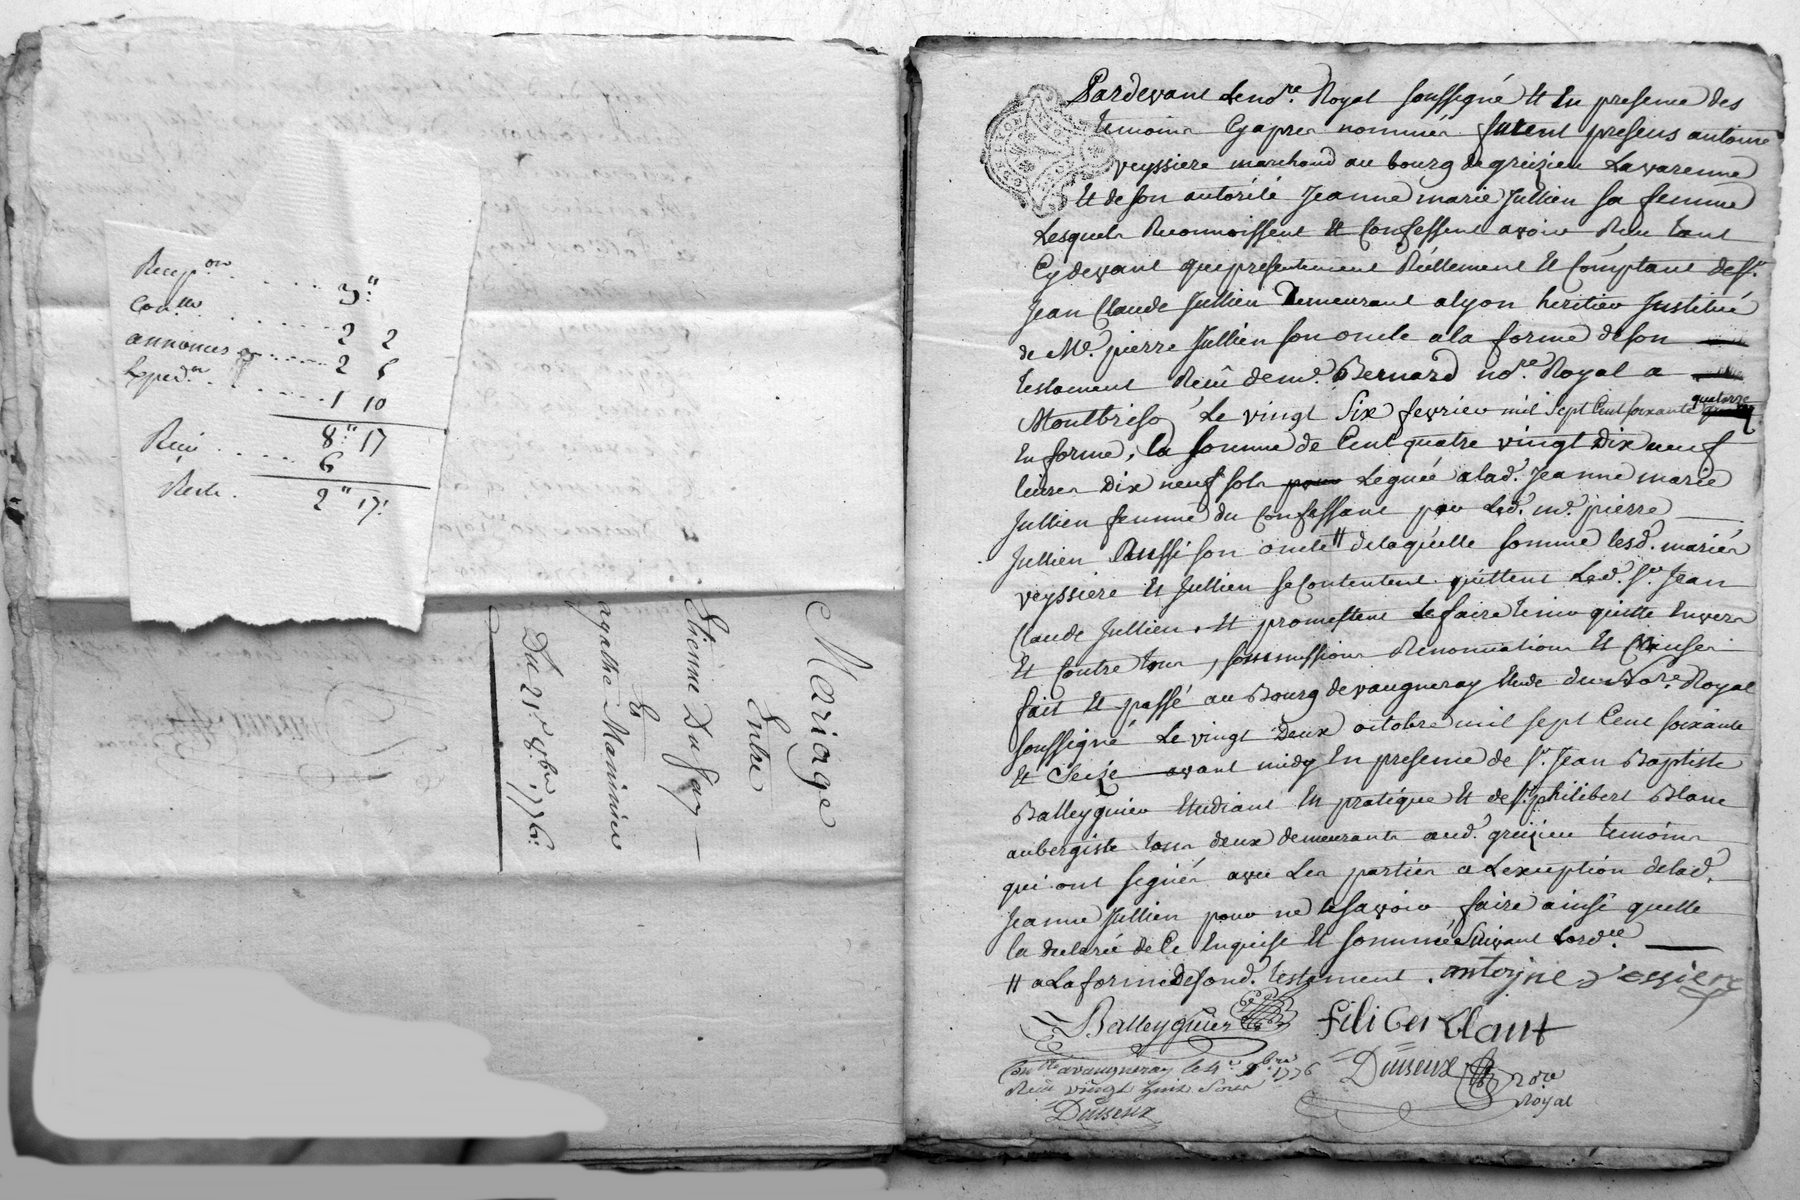 Recep.on . . . 3"
Con.lle . . . 2 2
annonces . . . 2 5
Exped.n . . . 1 10
8" 17
Receu . . . 6
Reste . 2" 17
Mariage
Entre
Etienne Dufay
Et
agathe
Du 21e 8bre 1776
Pardevant Le no.re Royal soussigné Et En presence des
temoins Cyapres nommés furent presens antoine
veyssiere marchand au bourg de greizieu Lavarenne
Et de son autorité Jeanne marie Jullien sa femme
Lesquels Reconnoissent Et Confessent avoir Reçu tant
Cydevant que presentement Réellement Et Comptant de Sr.
Jean Claude Jullien Demeurant a lyon heritier Institué
de Me. pierre Jullien son oncle a la forme de son
testament Reçû de me. Bernard no.re Royal a
Montbriso Le vingt Six fevrier mil sept Cent soixante quatorze
En forme, la somme de Cent quatre vingt Dix neuf
livres Dix neuf sols Leguée a lad. Jeanne marie
Jullien femme du Confessant par Led. me. pierre
Jullien Aussi son oncle # de laquelle somme lesd. mariés
veyssiere Et Jullien se Contentent quittent Led. Sr. Jean
Claude Jullien, Et promettent Le faire tenir quitte Envers
Et Contre tous, soumissions Renonciations Et Clauses
fait Et passé au Bourg de vaugneray Etude du No.re Royal
soussigné Le vingt Deux octobre mil sept Cent soixante
Et Seize avant midy En presence de Sr. Jean Baptiste
Balleyguier Etudiant En pratique Et de Sr. philibert Blanc
aubergiste tous deux demeurants aud. greizieu temoins
qui ont signés avec Les parties a Lexception de lad.
Jeanne Jullien pour ne le savoir faire ainsi quelle
la declaré de Ce Enquise Et sommée Suivant Lord.ce
# a La forme De sond. testament . antoine vessiere
Balleyguier filiber blant
Con.lle a vaugneray le 4e 9bre 1776 Duseux no.re
Reçu vingt huit sous Royal
Duseux